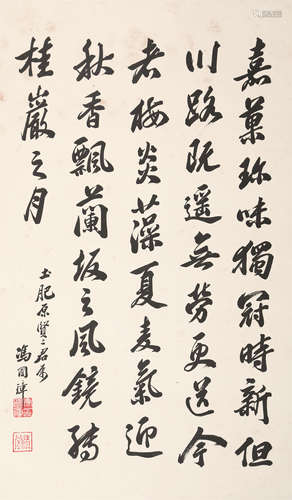 嘉菓珍味獨冠時新但
川路既遥無勞更送今
者梅炎藻夏麦氣迎
秋香飄蘭坂之風鏡轉
桂巖之月
土肥原賢二君属
馮閱模